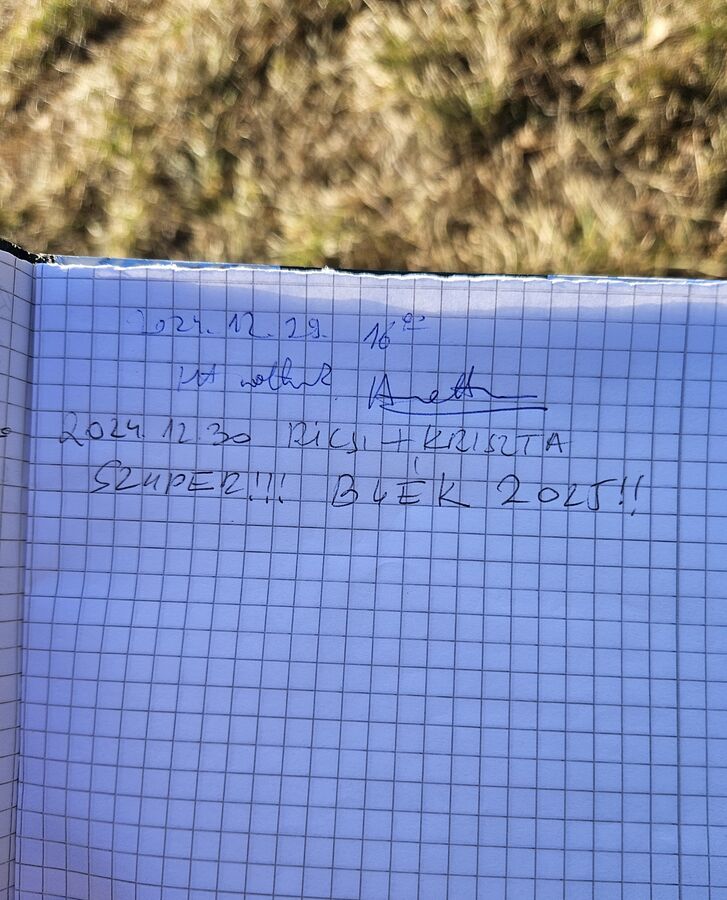 2024. 12. 29. 16⁰⁰
Itt voltunk. Anett
2024. 12. 30 RICSI + KRISZTA
SZUPER!!! BÚÉK 2025!!